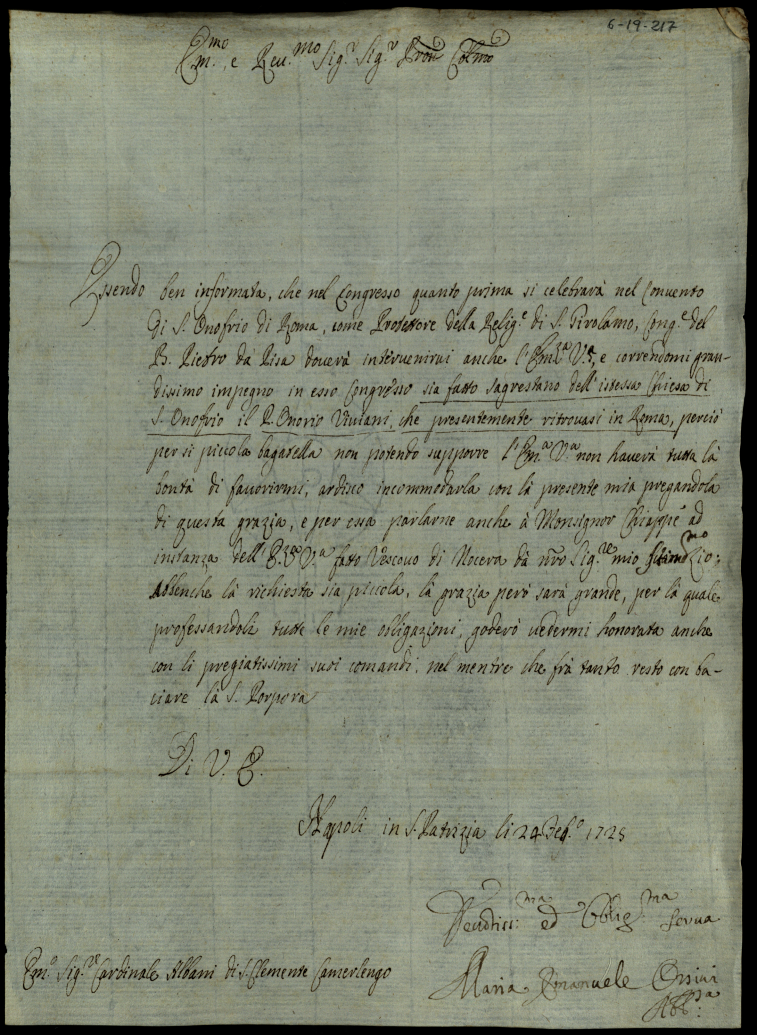 6-19-217
Em.mo e Reu.mo Sig.r Sig.r Pron Colmo
Essendo ben informata, che nel Congresso quanto prima si celebrarà nel Conuento
di S. Onofrio di Roma, come Protettore della Relig.e di S. Girolamo, Cong.e del
B. Pietro da Pisa douerà interuenirui anche l'Em.za V.a, e correndomi gran-
dissimo impegno in esso Congresso sia fatto Sagrestano dell'istessa Chiesa di
S. Onofrio il P. Onorio Viuiani, che presentemente ritrouasi in Roma, perciò
per si piccola bagatella non potendo supporre l'Em.a V.a non hauerà tutta la
bontà di fauorirmi, ardisco incommodarla con la presente mia pregandola
di questa grazia, e per essa parlarne anche à Monsignor Chiappè ad
instanza dell'E.za V.a fatto Vescouo di Nocera da nro Sig.re mio Zio;
abbenche la richiesta sia piccola, la grazia però sarà grande, per la quale
professandoli tutte le mie obligazioni, goderò uedermi honorata anche
con li pregiatissimi suoi comandi: nel mentre che frà tanto resto con ba-
ciare la S. Porpora
Di V. E.
Napoli in S. Patrizia li 24 Feb.o 1725
Deuotiss:ma ed Oblig:ma Serua
Em.o Sig.re Cardinale Albani di S. Clemente Camerlengo
Maria Emanuele Orsini
Abb:sa